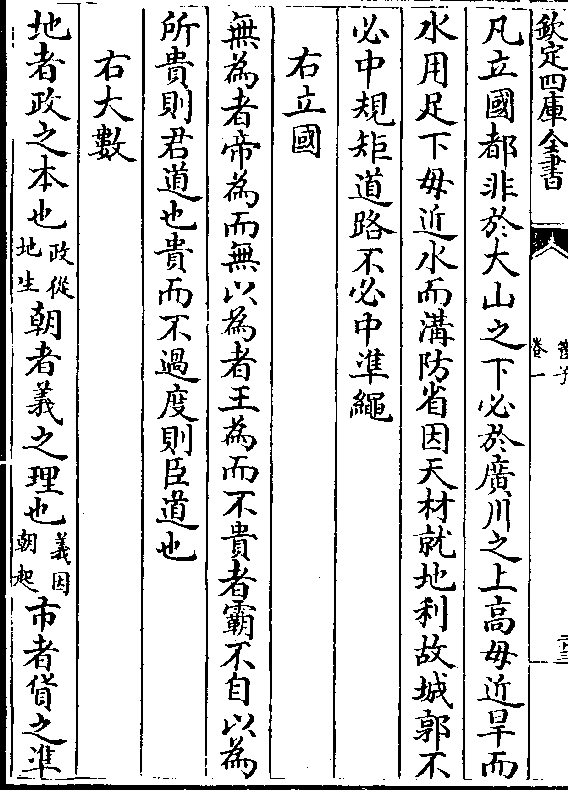 欽定四庫全書
管子
卷一
二三
凡立國都非於大山之下必於廣川之上高毋近旱而
水用足下毋近水而溝防省因天材就地利故城郭不
必中規矩道路不必中準繩
右立國
無為者帝為而無以為者王為而不貴者霸不自以為
所貴則君道也貴而不過度則臣道也
右大數
地者政之本也政從地生朝者義之理也義因朝起市者貨之準